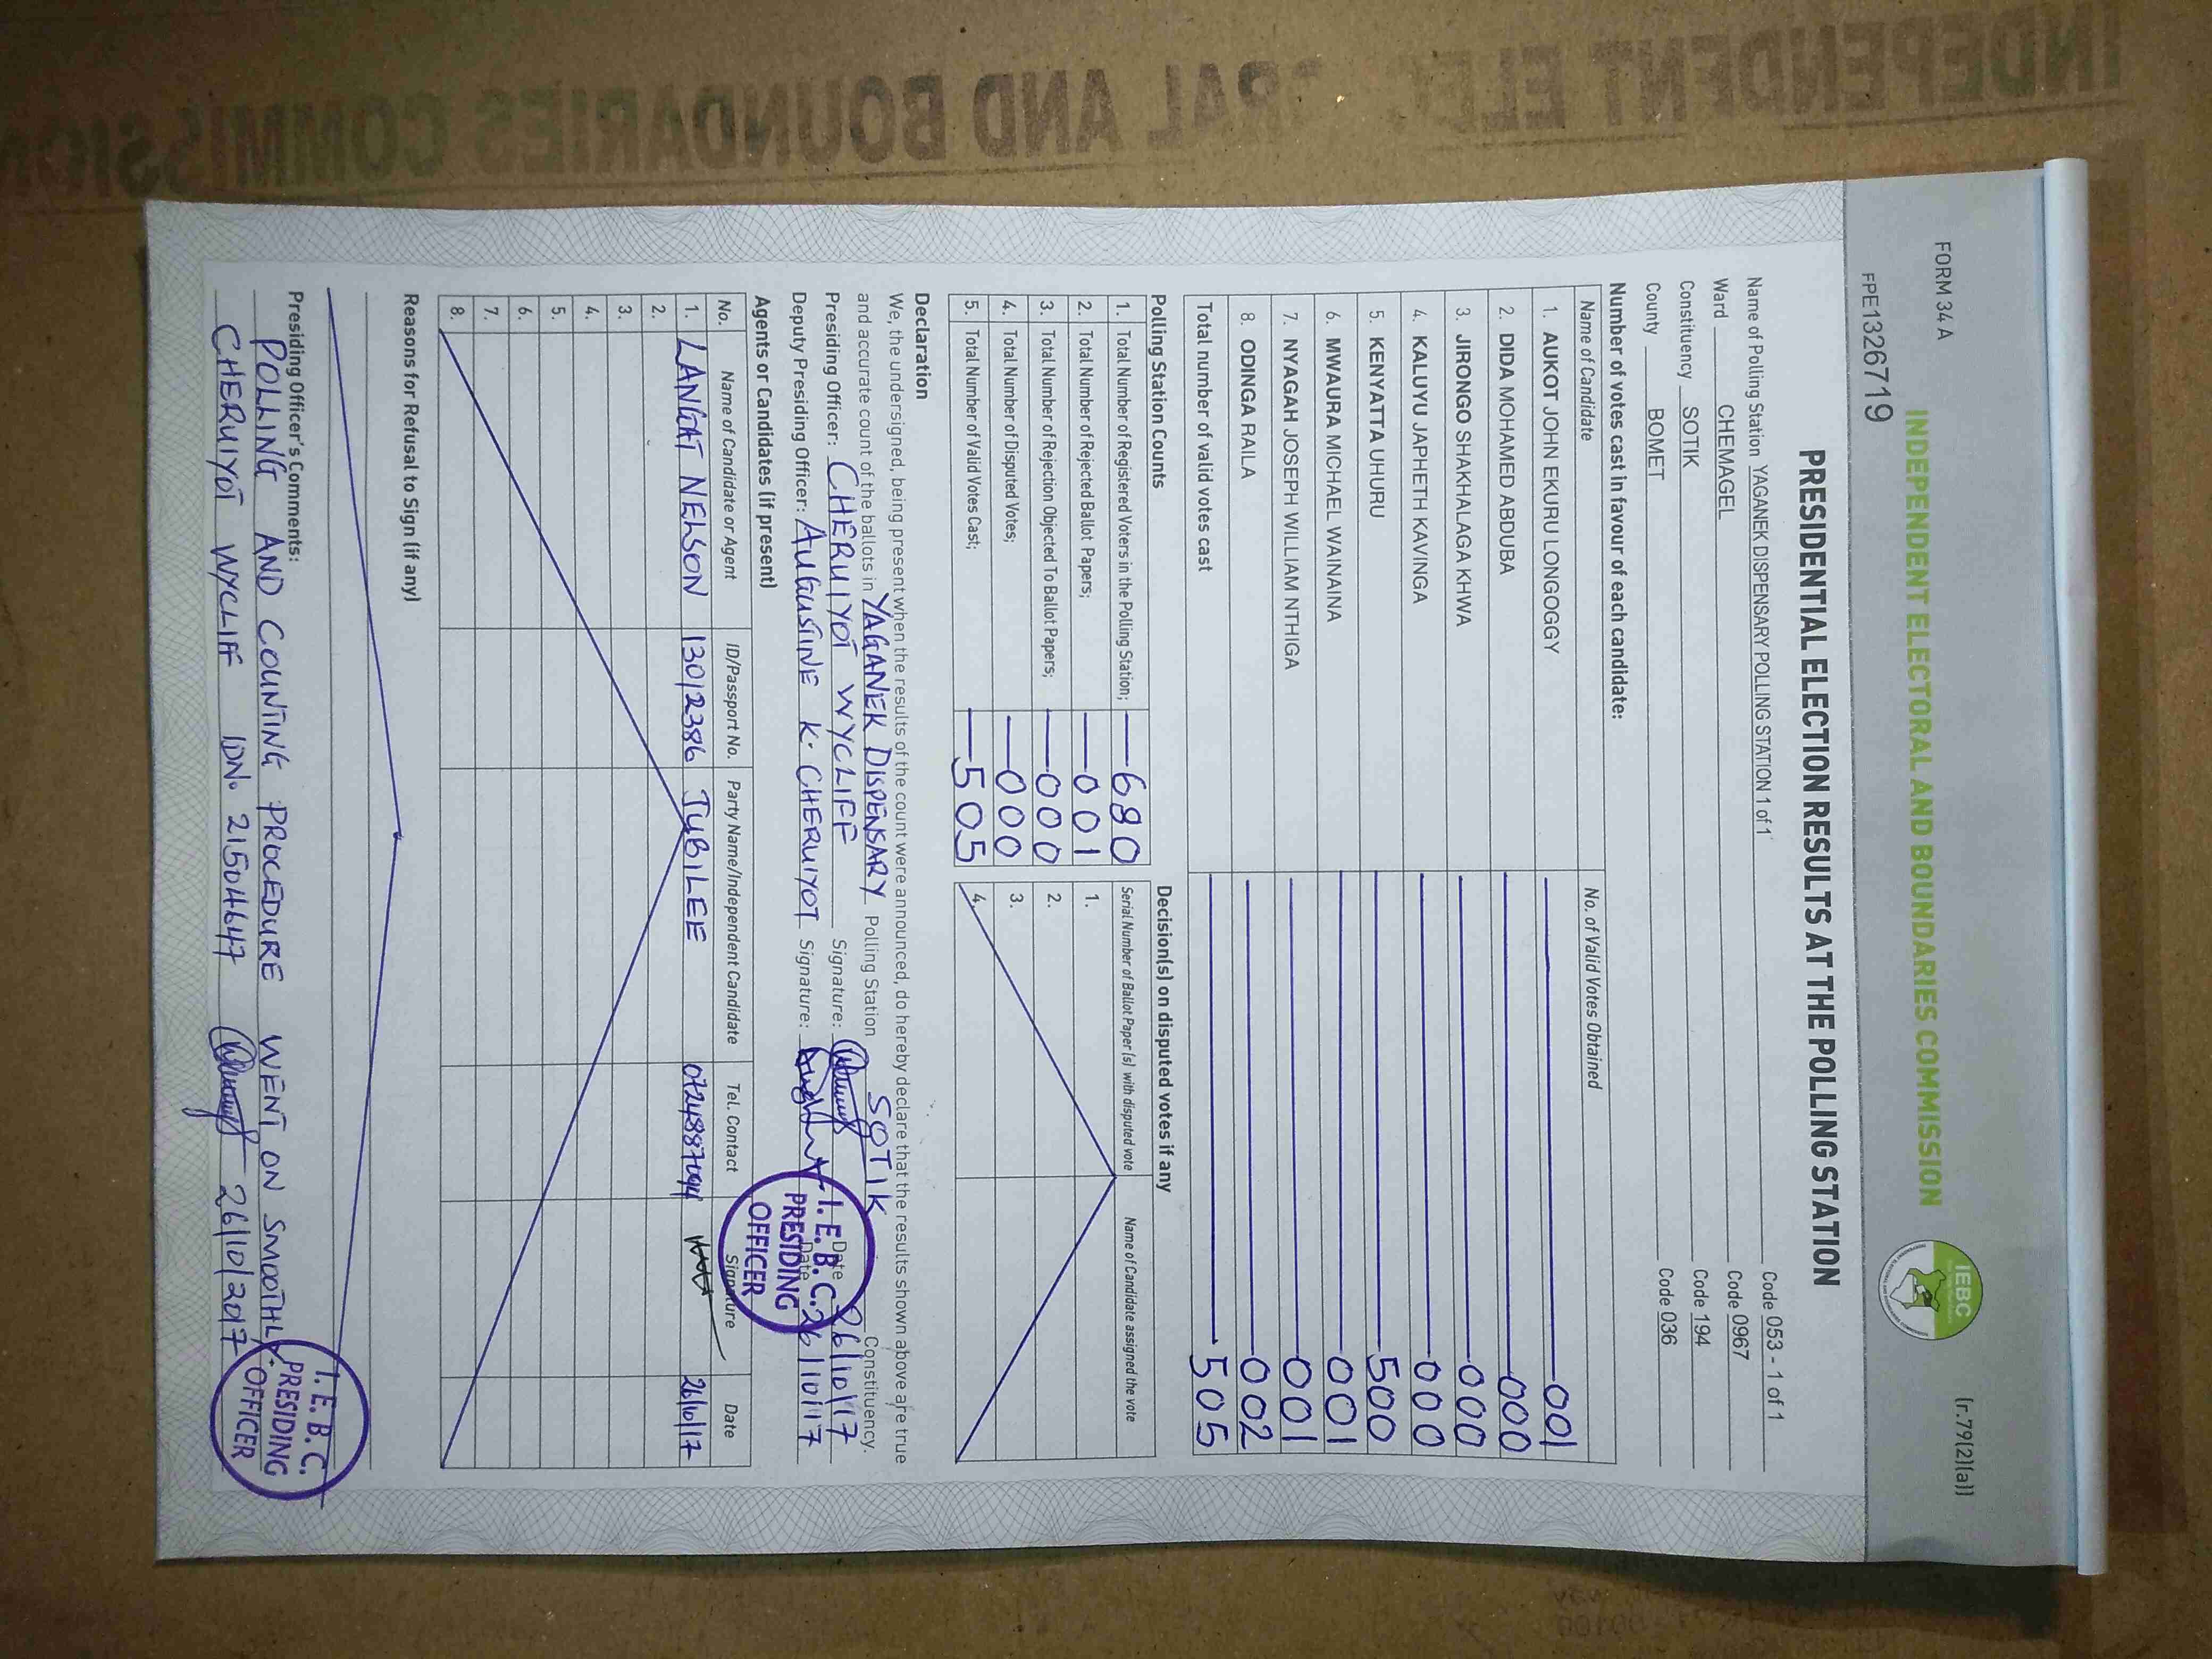 INDEPENDENT ELECTORAL AND BOUNDARIES COMMISSION
FORM 34 A
(r.79(2)(a))
INDEPENDENT ELECTORAL AND BOUNDARIES COMMISSION
IEBC
FPE1326719
PRESIDENTIAL ELECTION RESULTS AT THE POLLING STATION
Name of Polling Station YAGANEK DISPENSARY POLLING STATION 1 of 1 Code 053 - 1 of 1
Ward CHEMAGEL Code 0967
Constituency SOTIK Code 194
County BOMET Code 036
Number of votes cast in favour of each candidate:
Name of Candidate No. of Valid Votes Obtained
1. AUKOT JOHN EKURU LONGOGGY 001
2. DIDA MOHAMED ABDUBA 000
3. JIRONGO SHAKHALAGA KHWA 000
4. KALUYU JAPHETH KAVINGA 000
5. KENYATTA UHURU 500
6. MWAURA MICHAEL WAINAINA 001
7. NYAGAH JOSEPH WILLIAM NTHIGA 001
8. ODINGA RAILA 002
Total number of valid votes cast 505
Polling Station Counts
1. Total Number of Registered Voters in the Polling Station; 680
2. Total Number of Rejected Ballot Papers; 001
3. Total Number of Rejection Objected To Ballot Papers; 000
4. Total Number of Disputed Votes; 000
5. Total Number of Valid Votes Cast; 505
Decision(s) on disputed votes if any
Serial Number of Ballot Paper (s) with disputed vote Name of Candidate assigned the vote
1.
2.
3.
4.
Declaration
We, the undersigned, being present when the results of the count were announced, do hereby declare that the results shown above are true
and accurate count of the ballots in YAGANEK DISPENSARY Polling Station SOTIK Constituency.
Presiding Officer: CHERUIYOT WYCLIFF Signature: Date 26/10/17
Deputy Presiding Officer: AUGUSTINE K. CHERUIYOT Signature: Date 26/10/17
I. E. B. C.
PRESIDING
OFFICER
Agents or Candidates (if present)
No. Name of Candidate or Agent ID/Passport No. Party Name/Independent Candidate Tel. Contact Signature Date
1. LANGAT NELSON 13012386 JUBILEE 26/10/17
2.
3.
4.
5.
6.
7.
8.
Reasons for Refusal to Sign (if any)
Presiding Officer's Comments:
POLLING AND COUNTING PROCEDURE WENT ON SMOOTHLY.
CHERUIYOT WYCLIFF IDN. 21504647 26/10/2017
I. E. B. C.
PRESIDING
OFFICER